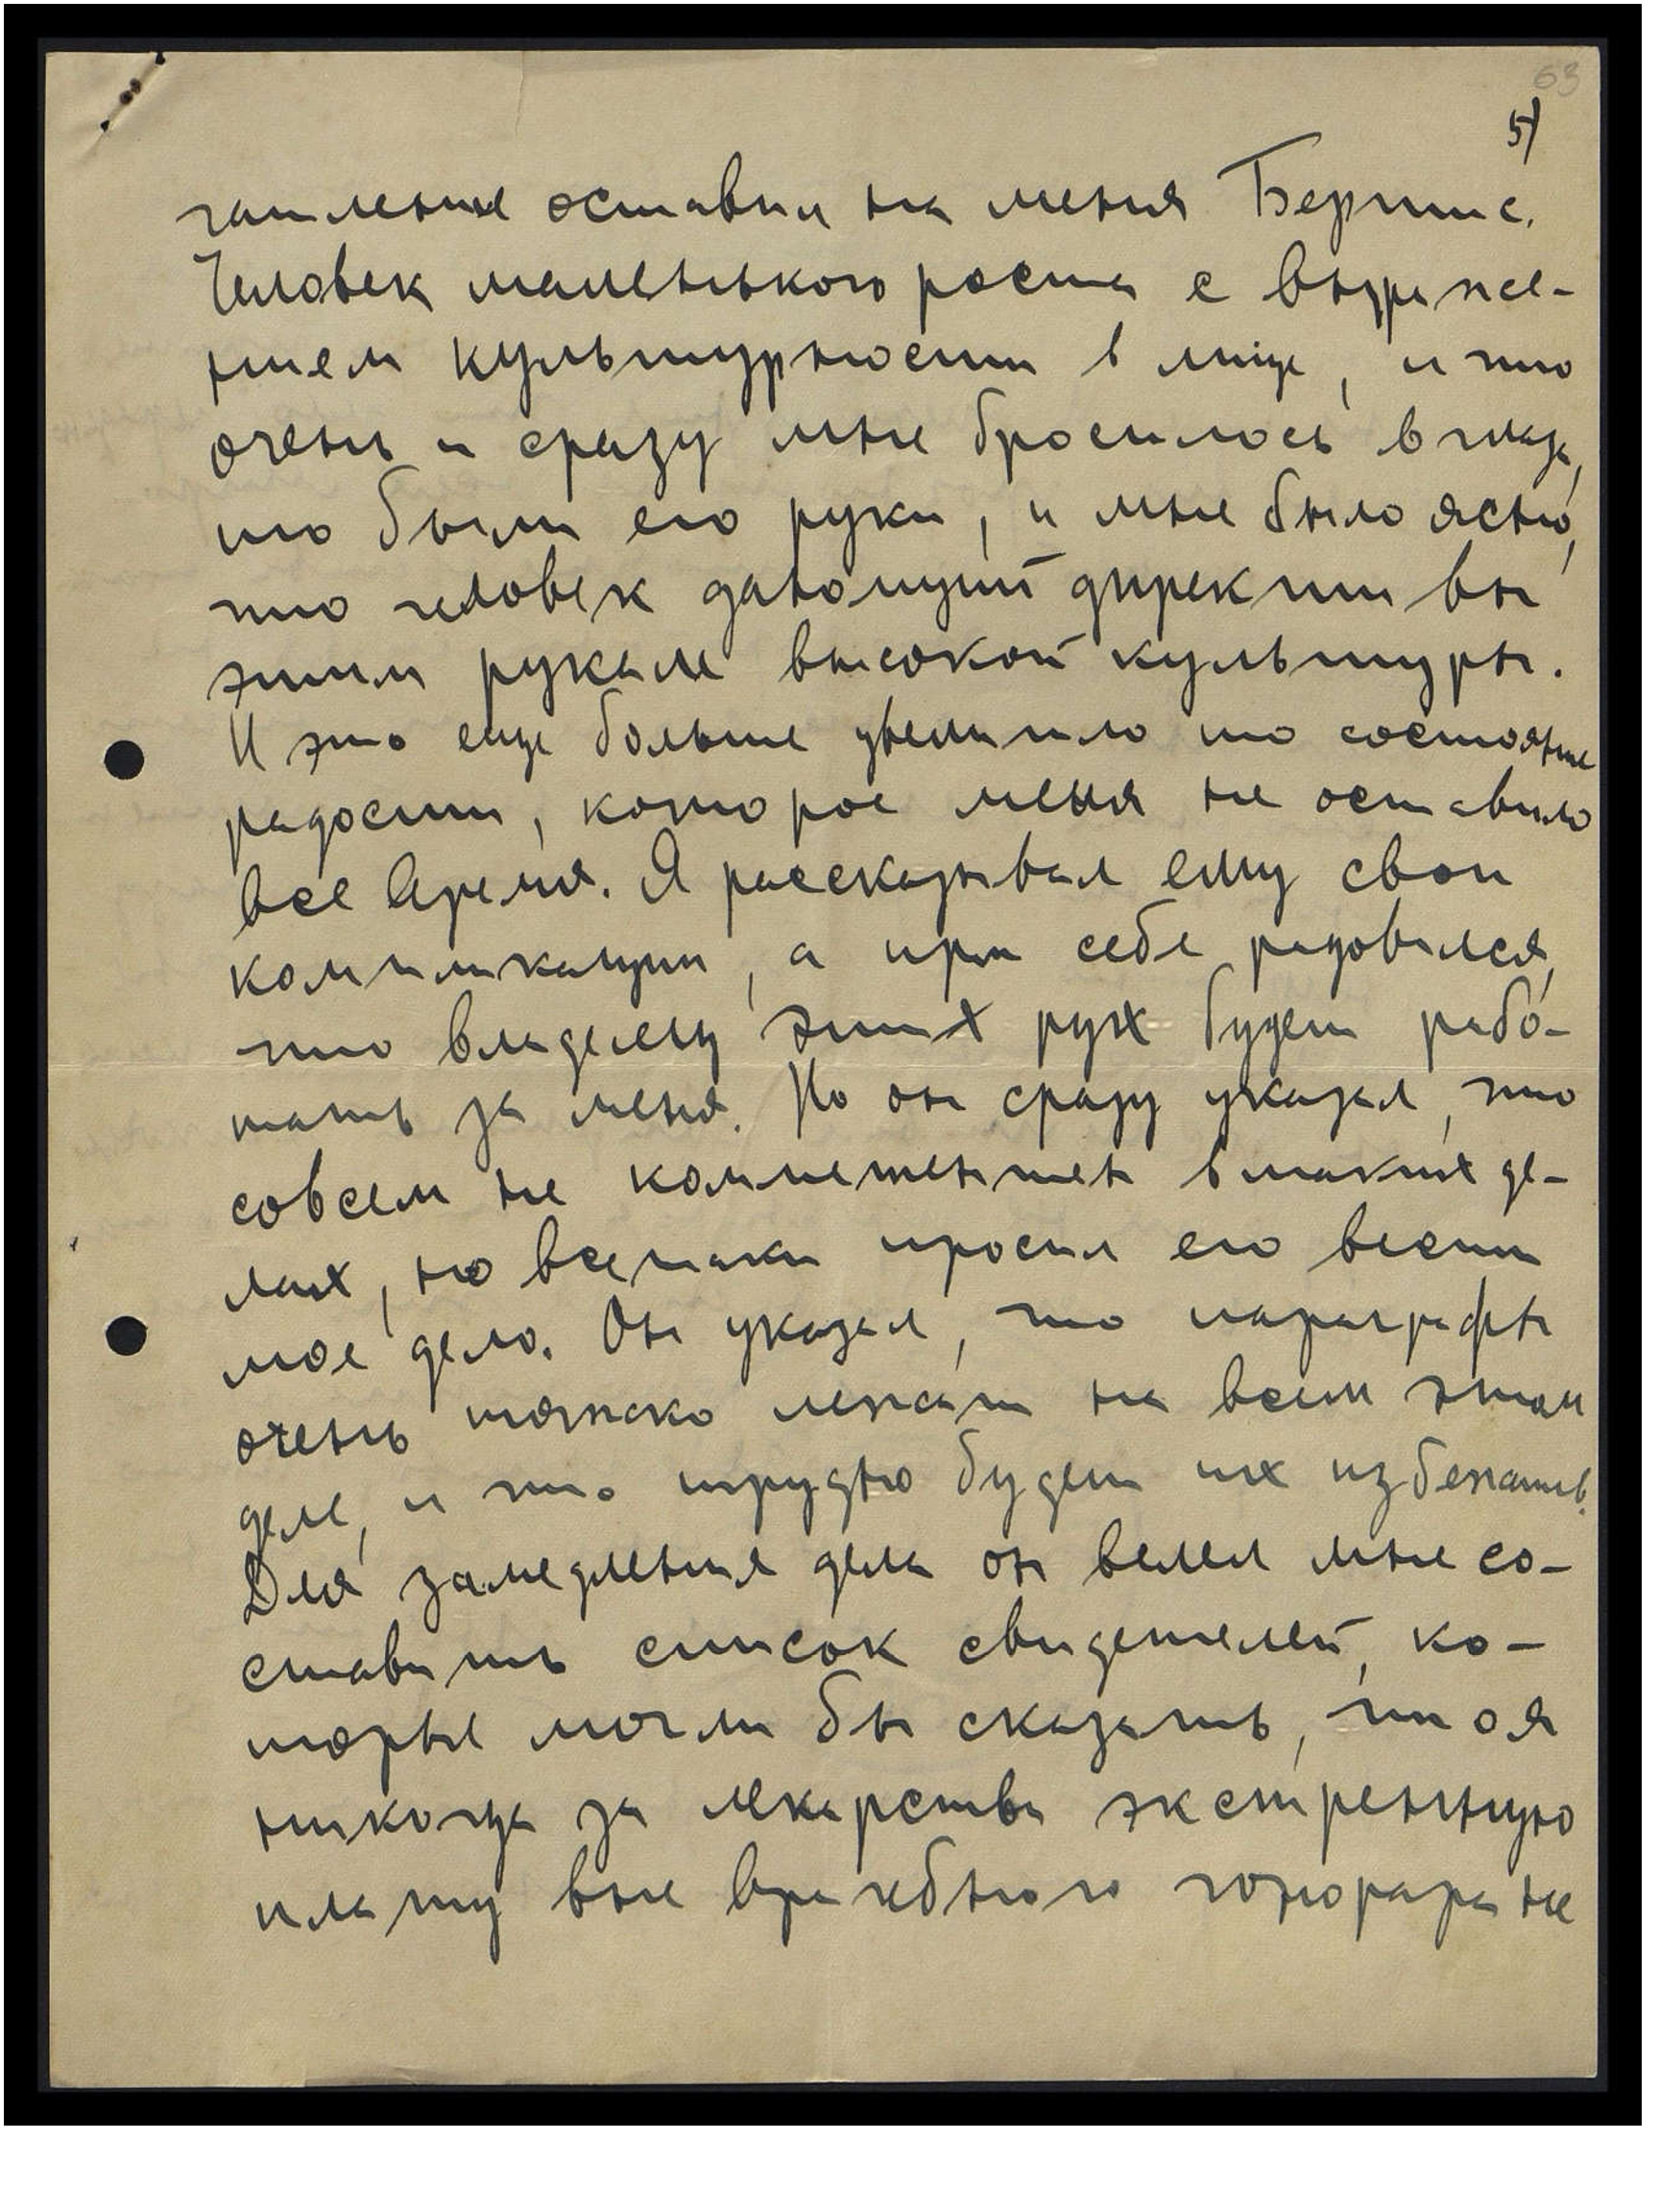 63
5)
чатление оставил на меня Бернис.
Человек маленького роста с выраже-
нием культурности в лице, и что
очень и сразу мне бросилось в глаза,
то были его руки, и мне было ясно,
что человек дающий директивы
этим рукам высокой культуры.
И это еще больше увеличило то состояние
радости, которое меня не оставило
все время. Я рассказывал ему свои
компликации, а при себе радовался,
что владелец этих рук будет рабо-
тать за меня. Но он сразу указал, что
совсем не компетентен в таких де-
лах, но всетаки просил его вести
мое дело. Он указал, что параграфы
очень тяжко лежат на всем этом
деле, и что трудно будет их избежать.
Для замедления дела он велел мне со-
ставить список свидетелей, ко-
торые могли бы сказать, что я
никогда за лекарства экстренную
плату вне врачебного гонорара не